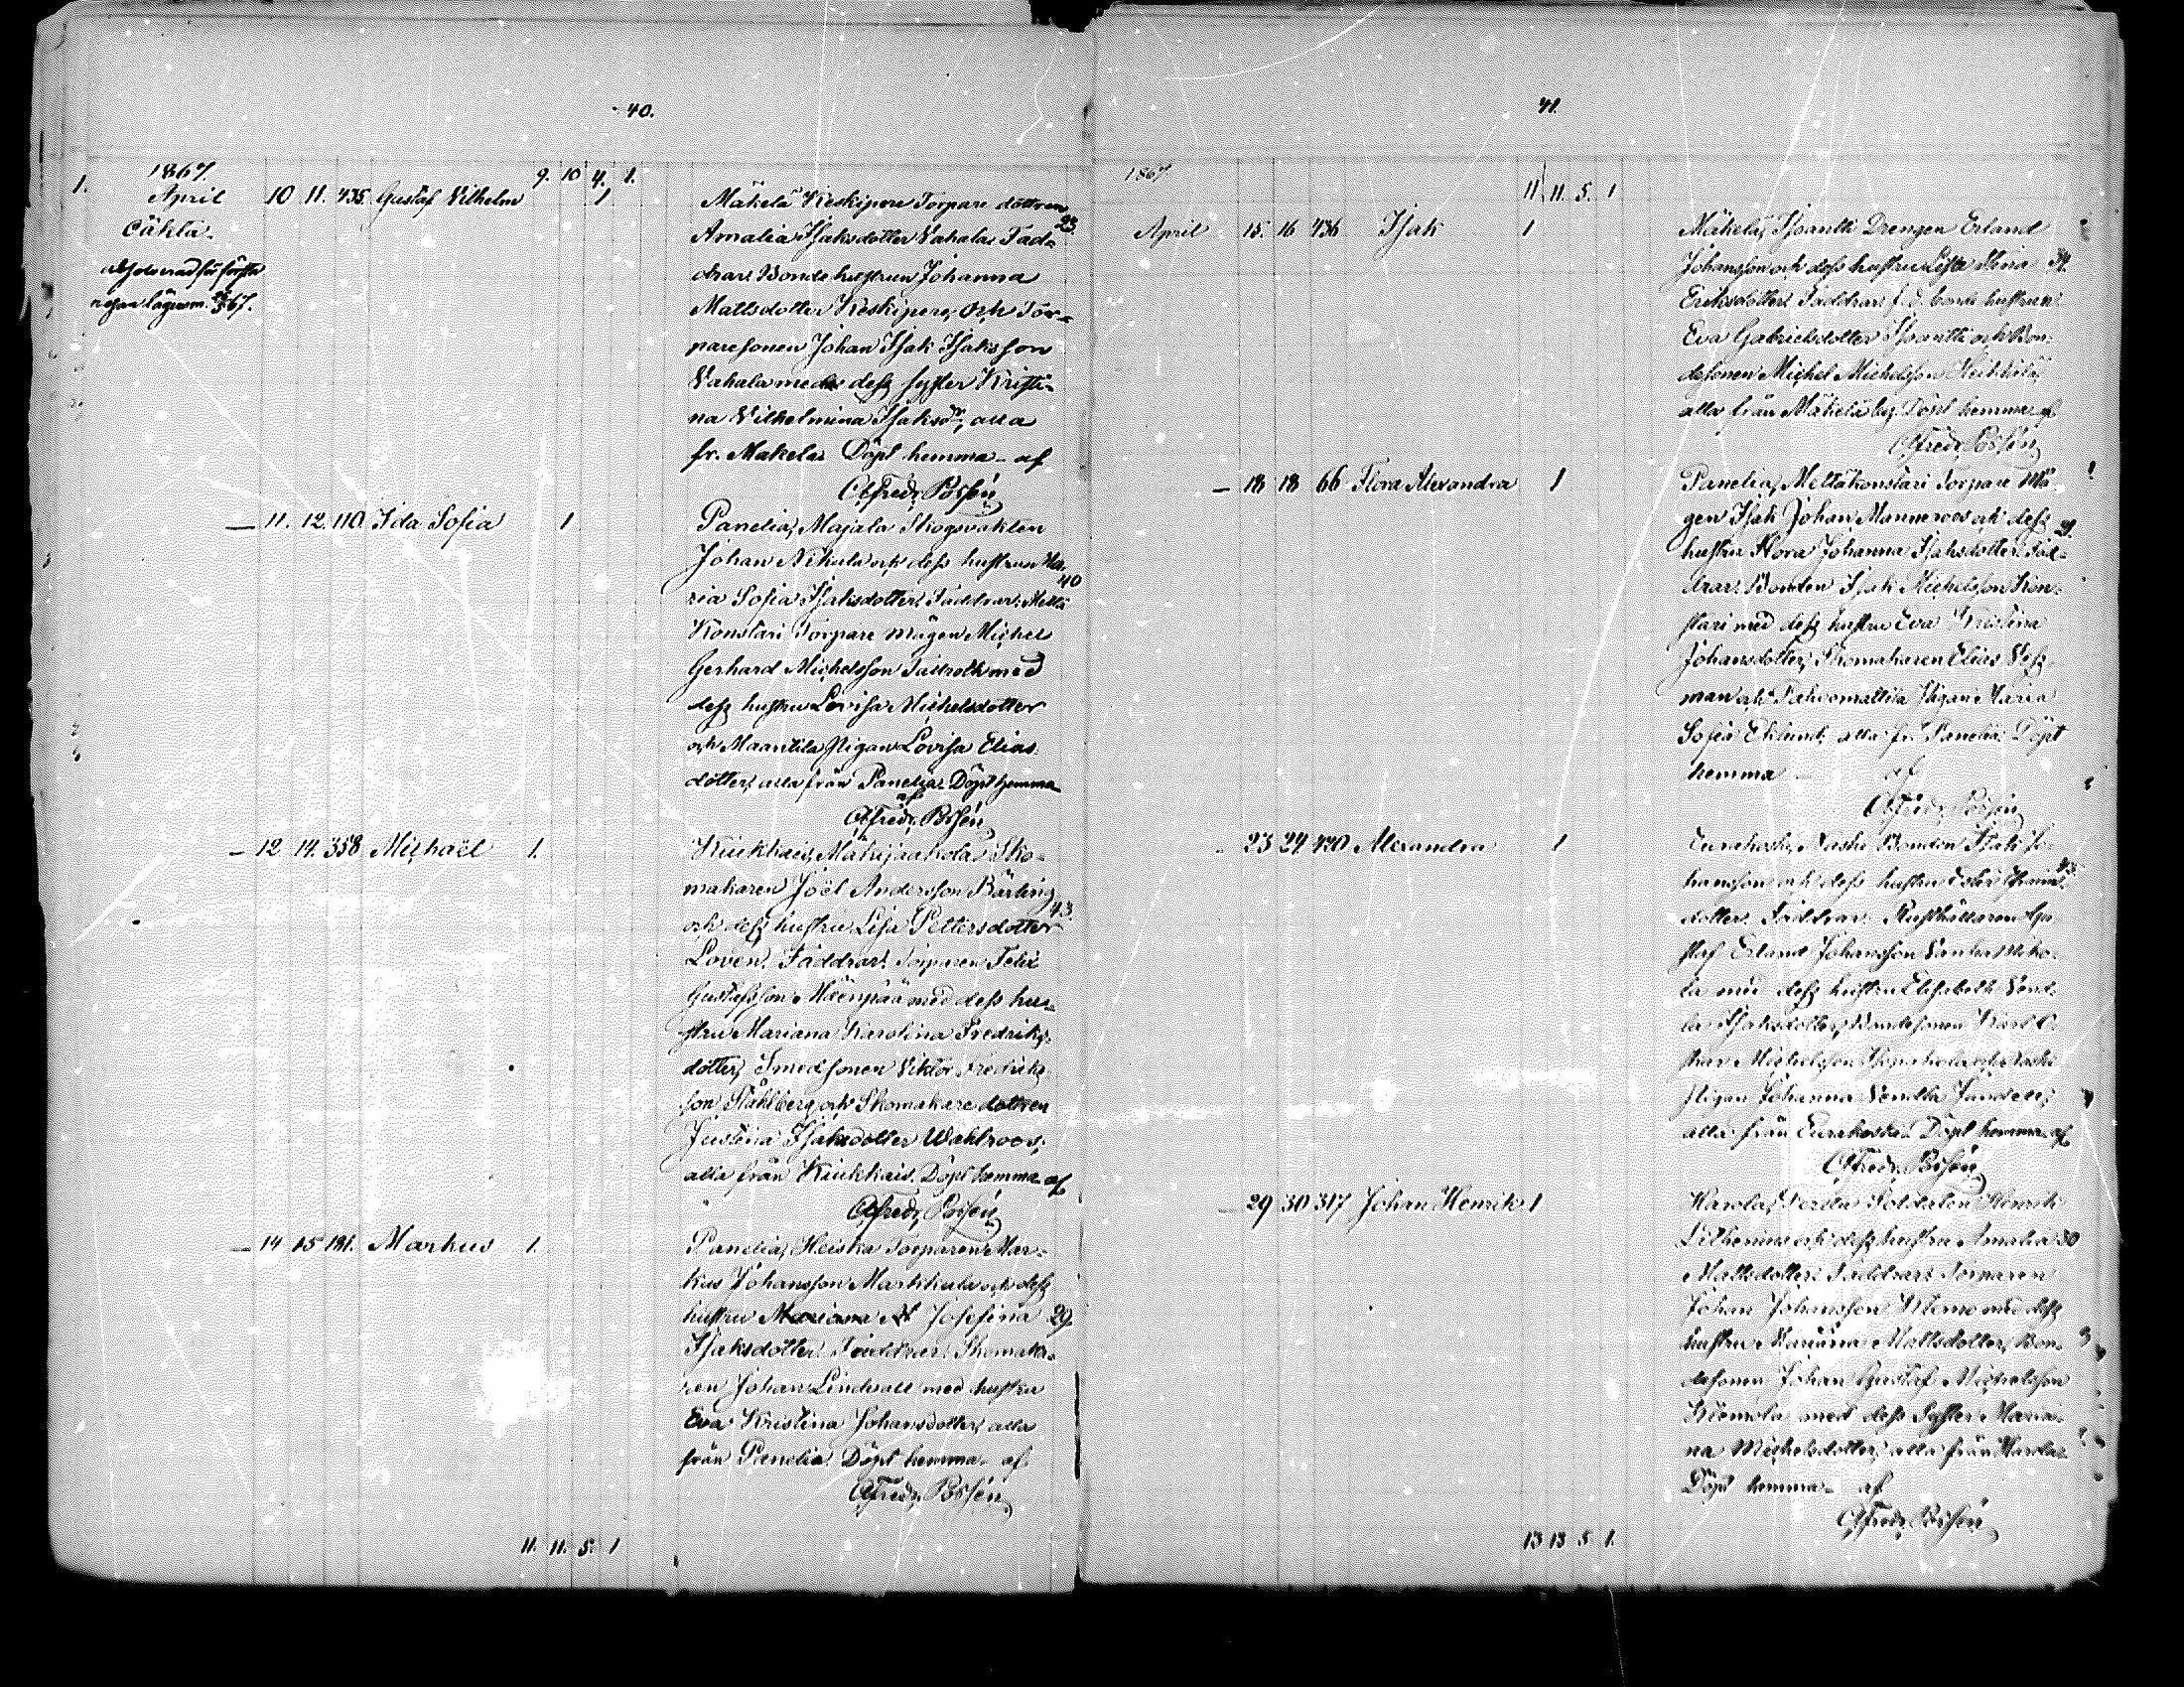 40.
1867. 9. 10 4. 1.
1. April 10 11. 435. Gustaf Vilhelm 1 Mäkelä Keskipere Torpare dottren
oäkta. Amalia Isaksdotter Vahala; Fad= 23
absolverad för första drar: Bonde hustrun Johanna
resan lägersm. 67. Mattsdotter Keskipere, och Tor=
paresonen Johan Isak Isaksson
Vahala med dess syster Kristi=
na Vilhelmina Isaksdr, alla
fr. Makela. Döpt hemma af
Alfred Posén
— 11. 12. 110. Ida Sofia 1 Panelia, Majala Skogsvakten
Johan Nikula och dess hustrun Ma=
40
ria Sofia Isaksdotter. Faddrar: Mellä
Konstari Torpare mågen Michel
Gerhard Michelsson Tallroth med
dess hustru Lovisa Michelsdotter
och Maantila Pigan Lovisa Elias
dotter, alla från Panelia. Döpt hemma
af
Alfred Posén
— 12 14. 358 Michaël 1. Kiukkais, Mäkijaakola Sko=
makaren Joël Andersson Bärling
43.
och dess hustru Lisa Pettersdotter
Loven. Faddrar: Torparen Felix
Gustafsson Mäenpää med dess hu=
stru Mariana Karolina Fredriks=
dotter, Smedsonen Viktor Fredriks
son Ståhlberg och Skomakare dottren
Justina Isaksdotter Wahlroos,
alla från Kiukkais. Döpt hemma af
Alfred Posén
— 14 15 181. Markus 1. Panelia, Heiska Torparen Mar=
kus Johansson Markkula och dess
hustru Josefina 29.
Isaksdotter. Faddrar: Skomaka=
ren Johan Lindvall med hustru
Eva Kristina Johansdotter, alla
från Panelia. Döpt hemma af
Alfred Posén
11. 11. 5. 1
41.
1867. 11. 11. 5. 1
April 15. 16 436 Isak 1 Mäkelä, Isoantti Drengen Erland
Johansson och dess hustru Lisa Stina 39.
Eriksdotter. Faddrar: f. d. bonde hustrun
Eva Gabrielsdotter Isoantti och Bon=
desonen Michel Michelsson Heikkilä,
alla från Mäkelä by. Döpt hemma af
Alfred Posén
— 18 18 66 Flora Alexandra 1 Panelia, Melläkonstari Torpare Må=
gen Isak Johan Manneroos och dess
hustru Flora Johanna Isaksdotter. Fad=
drar: Bonden Isak Michelsson Kon=
stari med dess hustru Eva Kristina
Johansdotter, Skomakaren Elias Vess
man och Pigan Maria
Sofia Eklund, alla fr. Panelia. Döpt
hemma af
Alfred Posén
23 24 440 Alexandra 1 Eurakoski, Naski Bonden Isak Jo=
hansson och dess hustru
dotter. Faddrar: Rusthållaren Gu=
staf Erland Johansson Vanha
la med dess hustru Elisabeth Vend=
la Isaksdotter, Bondesonen Karl O=
skar Michelsson och Naski
Pigan Johanna Vendla
alla från Eurakoski. Döpt hemma af
Alfred Posén
— 29 30 317 Johan Henrik 1 Harola, Perttu Soldaten Henrik
Lilhenius och dess hustru Amalia 30
Mattsdotter. Faddrar: Torparen
Johan Johansson med dess
hustru Mariana Mattsdotter, Bon=
desonen Johan Gustaf Michelsson
Krömola med dess Syster Maria=
na Michelsdotter, alla från Harola.
Döpt hemma af
Alfred Posén
13 13 5 1.